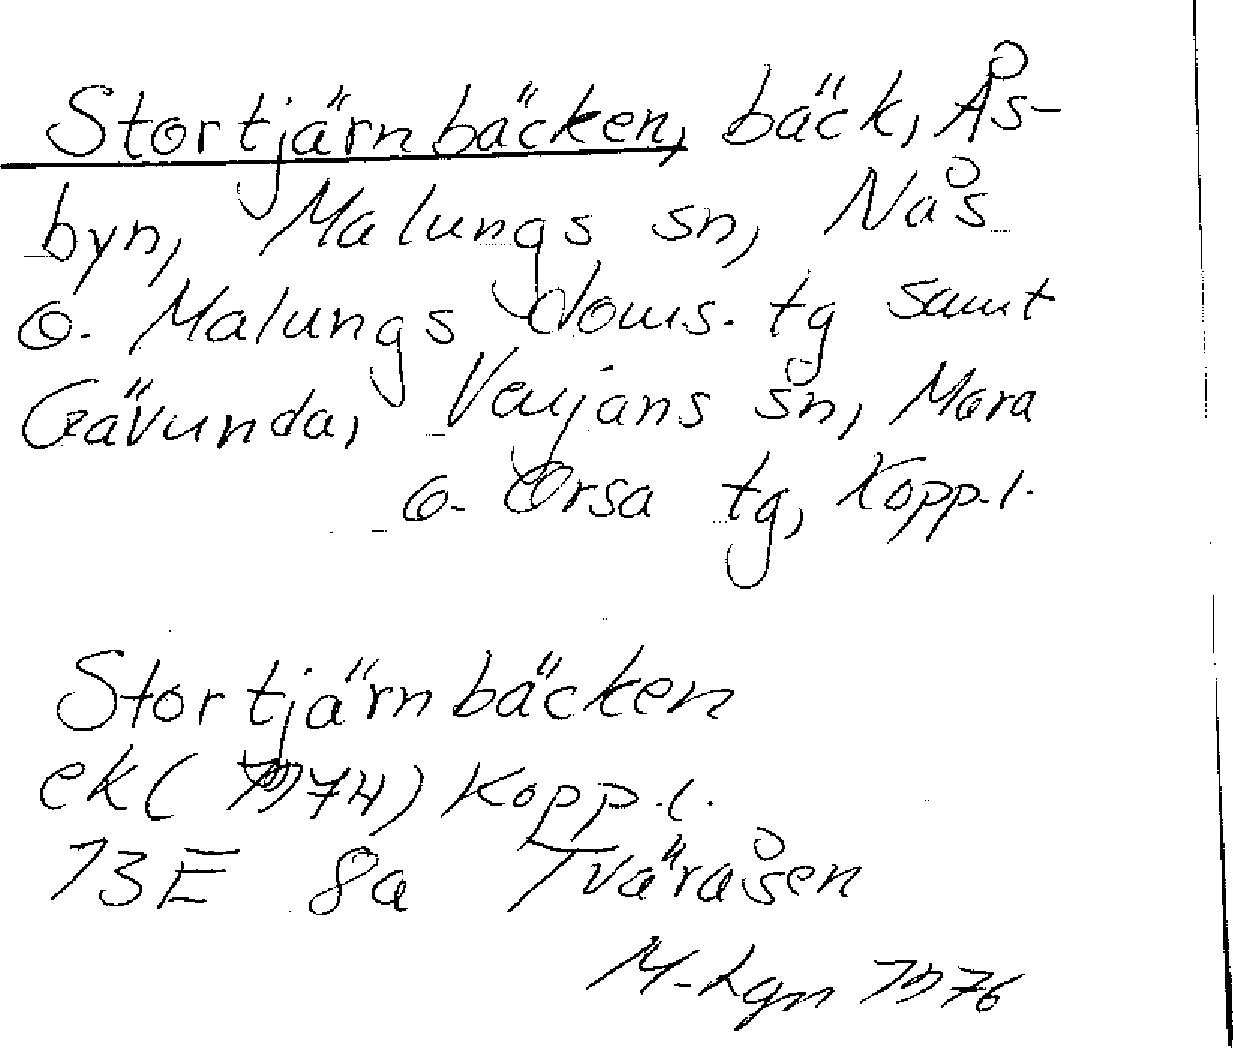 Stortjärnbäcken, bäck, Ås-
byn, Malungs sn, Nås
o. Malungs doms. tg samt
Gävunda, Venjans sn, Mora
o. Orsa tg, Kopp.l.
Stortjärnbäcken
ek (1974) Kopp.l.
13E 8a Tväråsen
1976